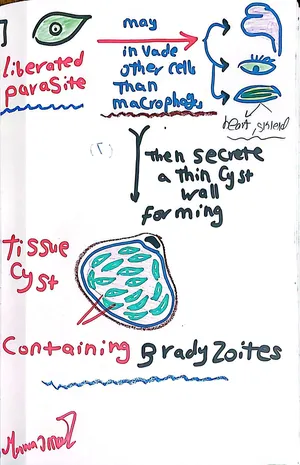 liberated
parasite
may
invade
other cells
Than
macrophages
heart, skletal
(٢)
Then secrete
a thin Cyst
wall
forming
Tissue
Cyst
Containing BradyZoites